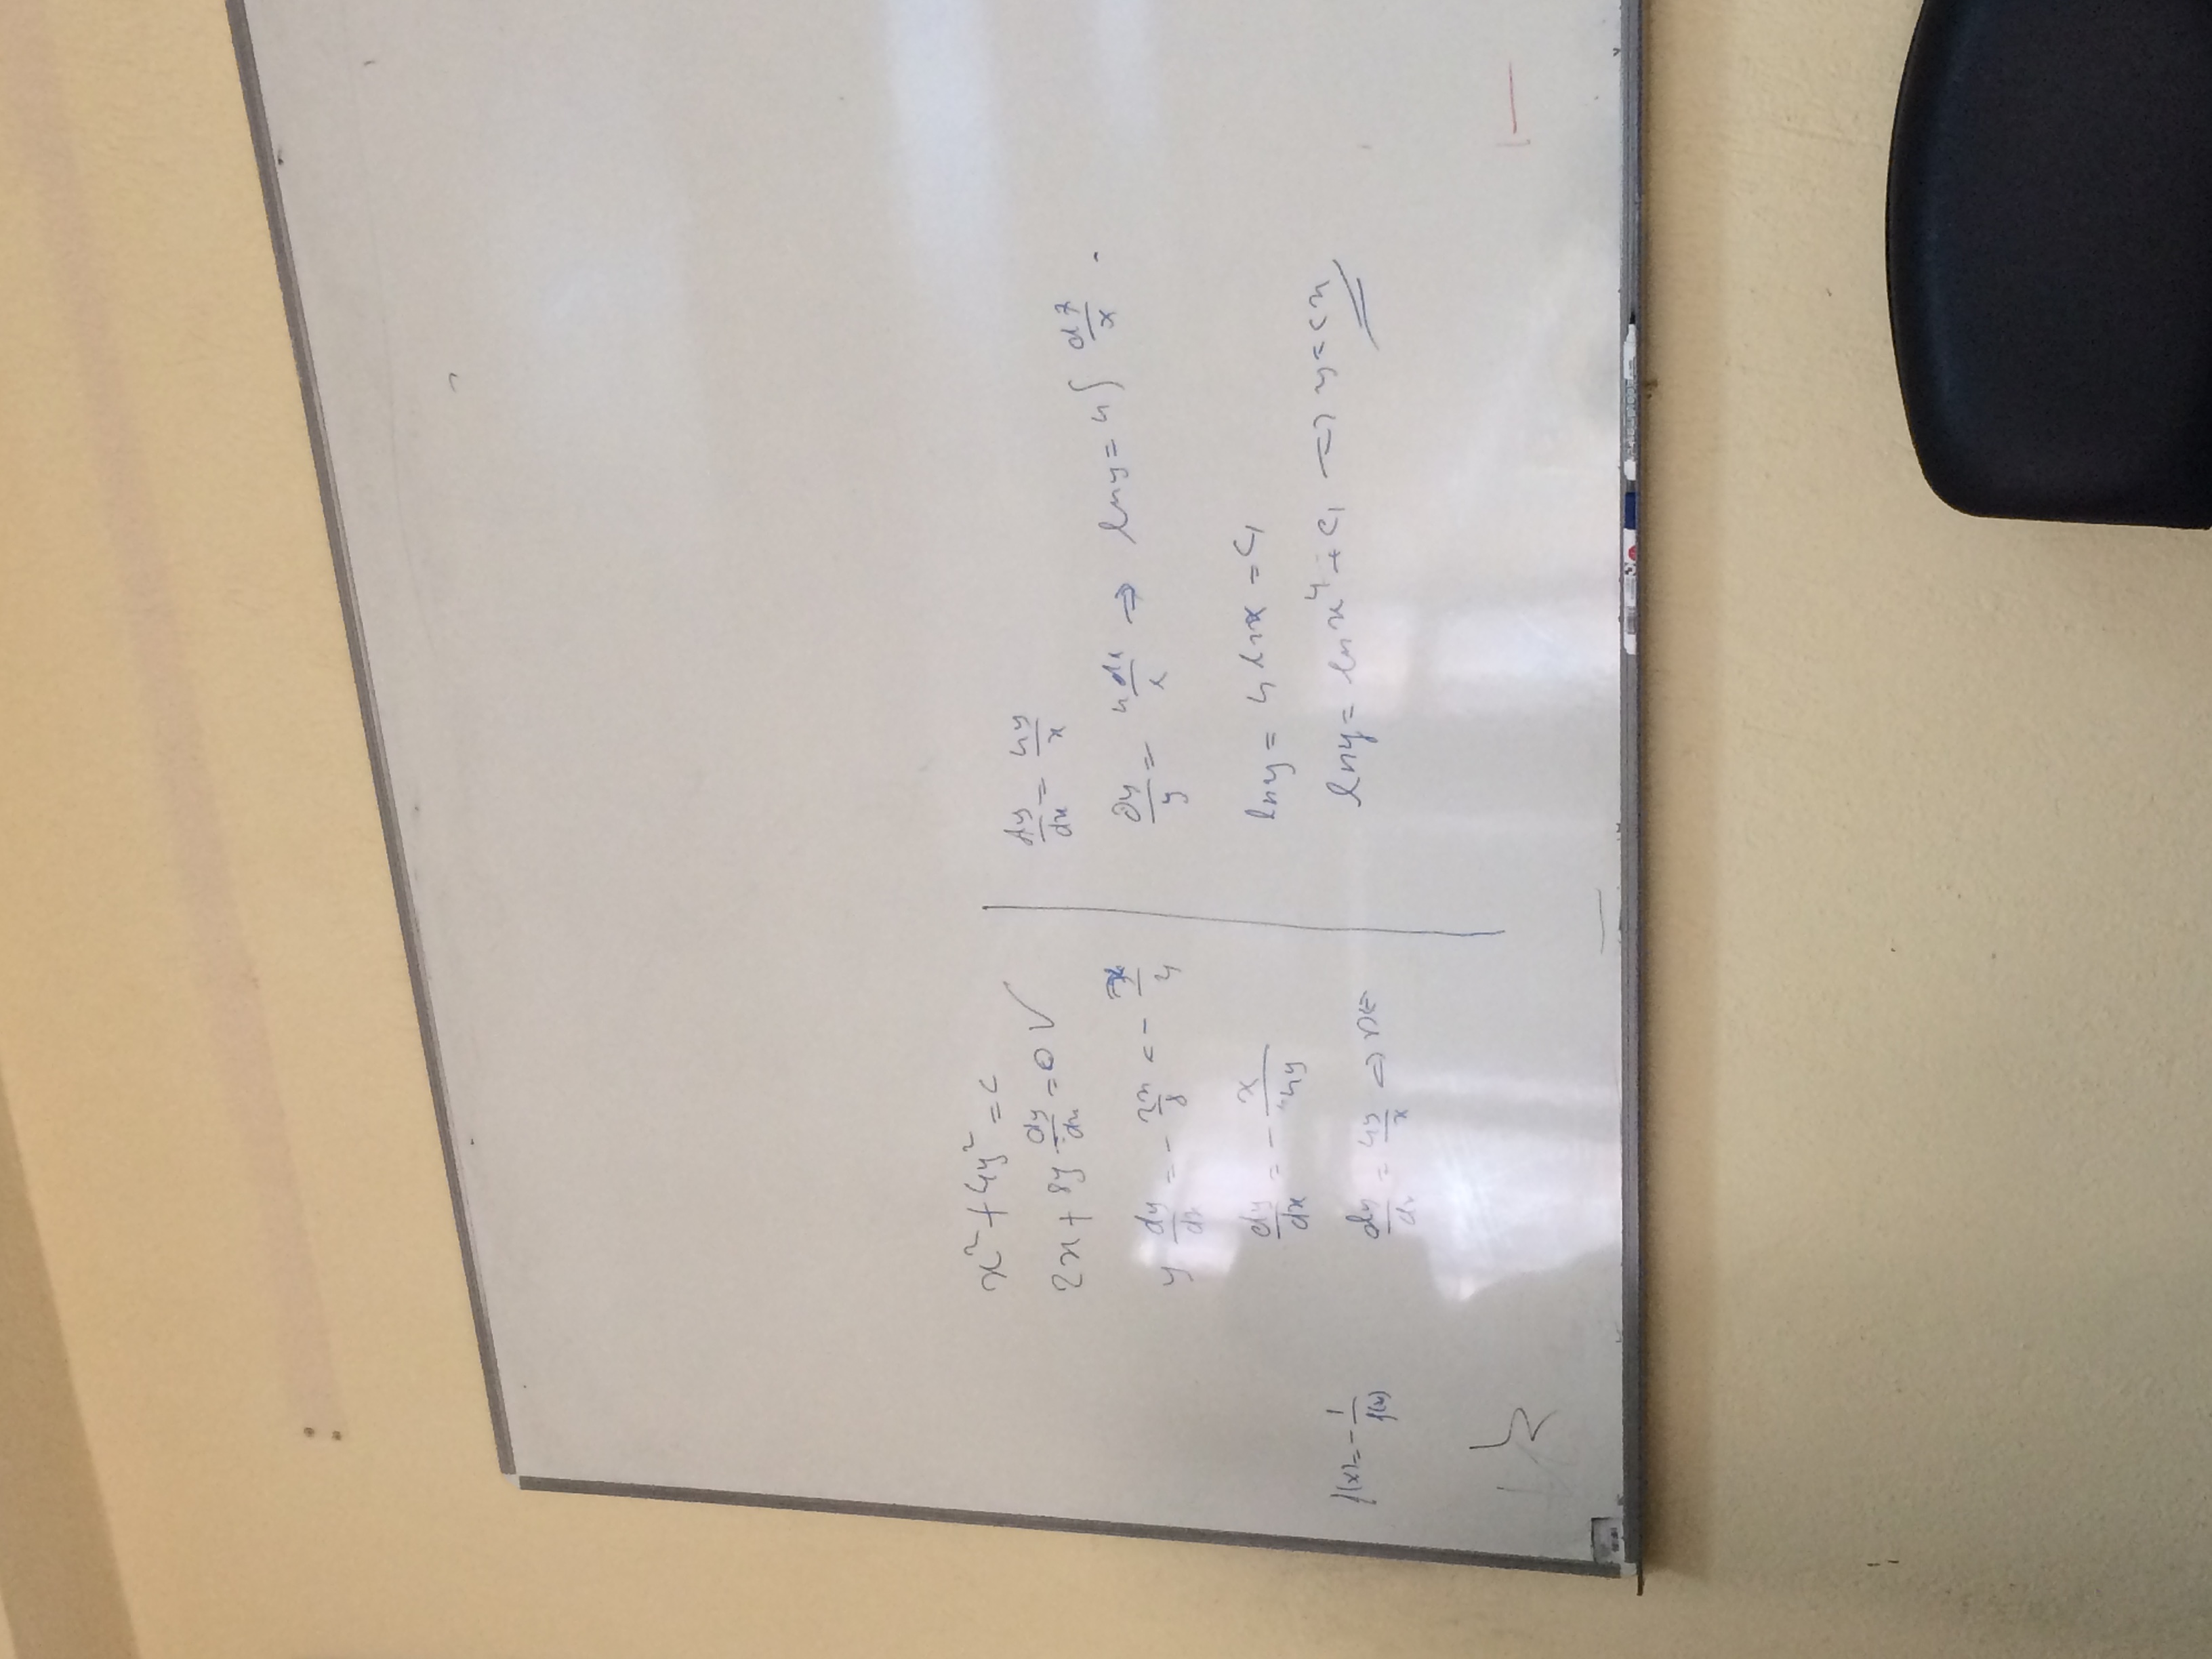 x² + 4y² = c
2x + 8y dy/dx = 0 ✓
y dy/dx = - 2x/8 = - x/4
dy/dx = - x/4y
f(x) = - 1/f(x)
dy/dx = 4y/x ⇒ DE
dy/dx = 4y/x
dy/y = 4dx/x ⇒ ln y = 4∫ dx/x .
ln y = 4 ln x = C₁
ln y = ln x⁴ + C₁ ⇒ y = cx